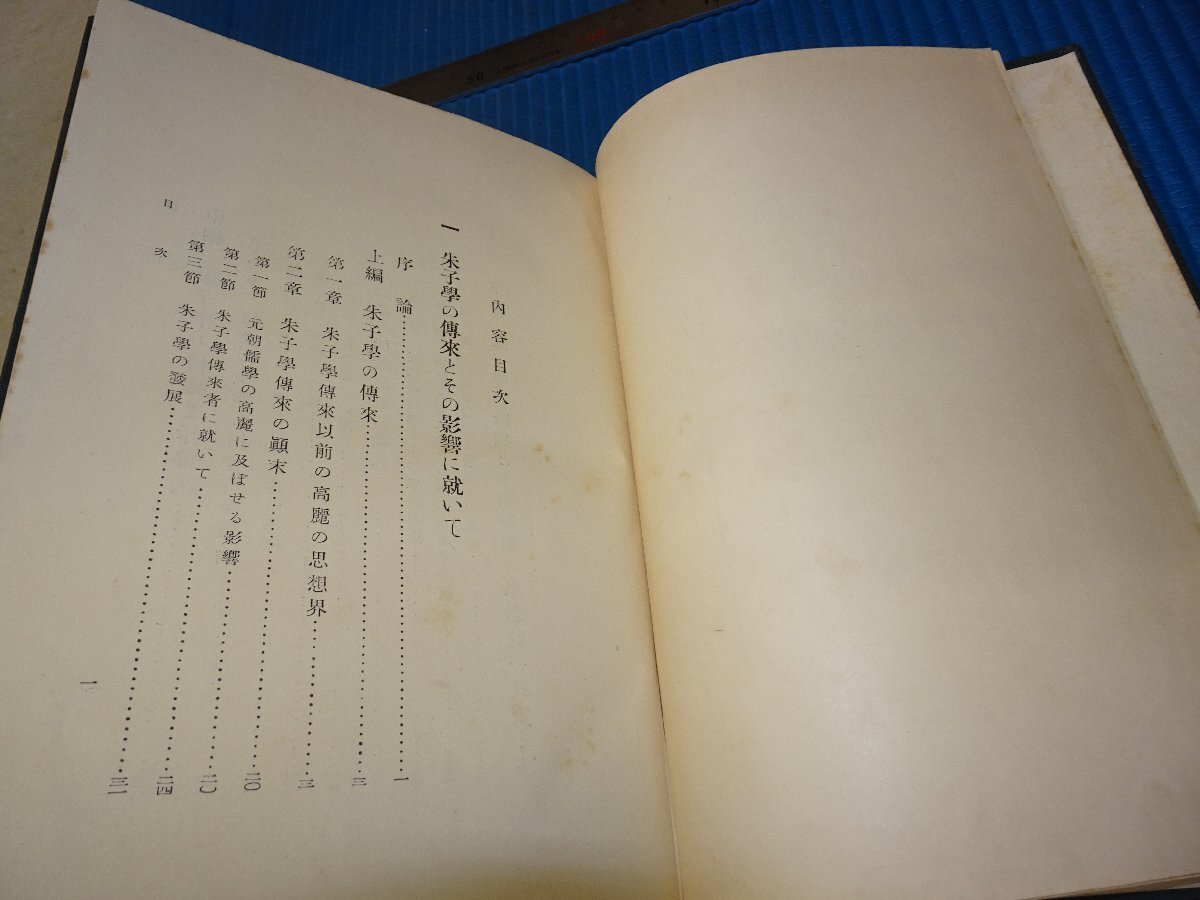 內容目次
一 朱子學の傳來とその影響に就いて
序論……一
上編 朱子學の傳來……三
第一章 朱子學傳來以前の高麗の思想界……三
第二章 朱子學傳來の顚末……二〇
第一節 元朝儒學の高麗に及ぼせる影響……二〇
第二節 朱子學傳來者に就いて……二四
第三節 朱子學の發展……三一
目次
一
50